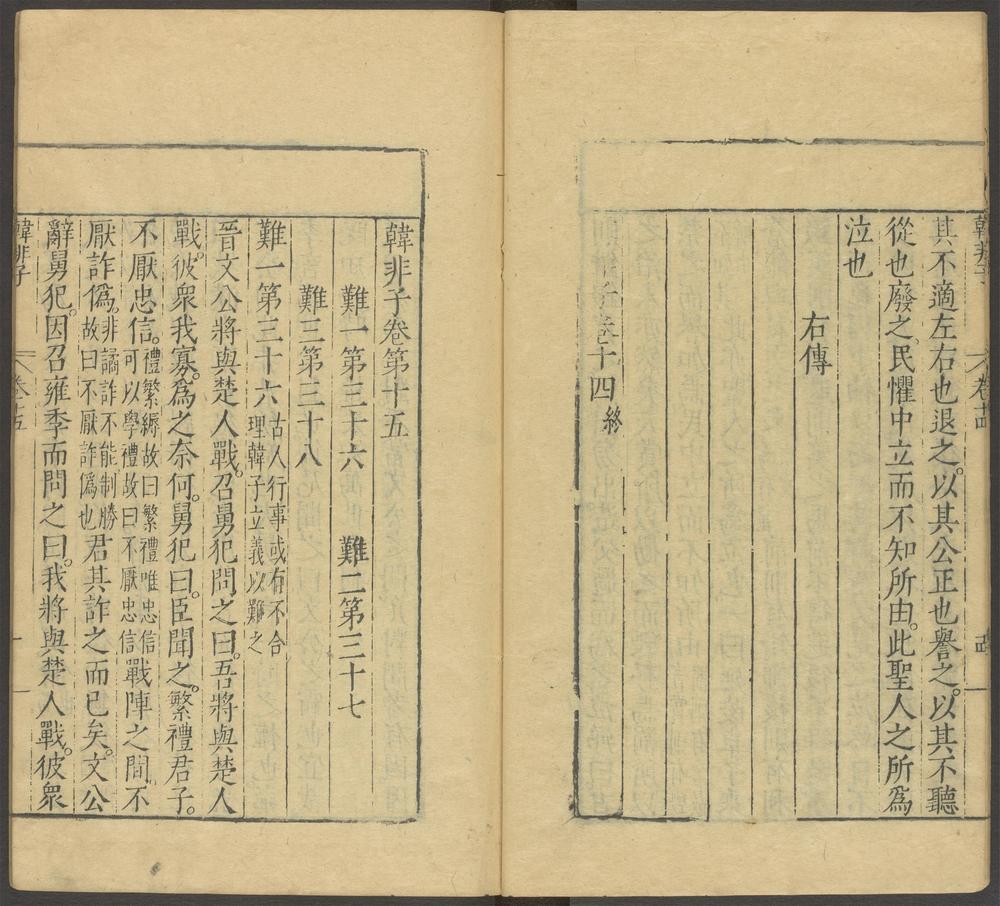 韓非子
卷十四
其不適左右也退之以其公正也譽之以其不聽
從也廢之民懼中立而不知所由此聖人之所爲
泣也
右傳
卷十四終
韓非子卷第十五
難一第三十六 難二第三十七
難三第三十八
難一第三十六古人行事或有不合理韓子立義以難之
晉文公將與楚人戰。召舅犯問之曰。吾將與楚人
戰。彼衆我寡。爲之奈何。舅犯曰。臣聞之。繁禮君子。
不厭忠信。禮繁縟故曰繁禮唯忠信可以學禮故曰不厭忠信戰陣之間。不
厭詐僞。非譎詐不能制勝故曰不厭詐僞也君其詐之而已矣。文公
辭舅犯。因召雍季而問之曰。我將與楚人戰。彼衆
韓非子
卷十五